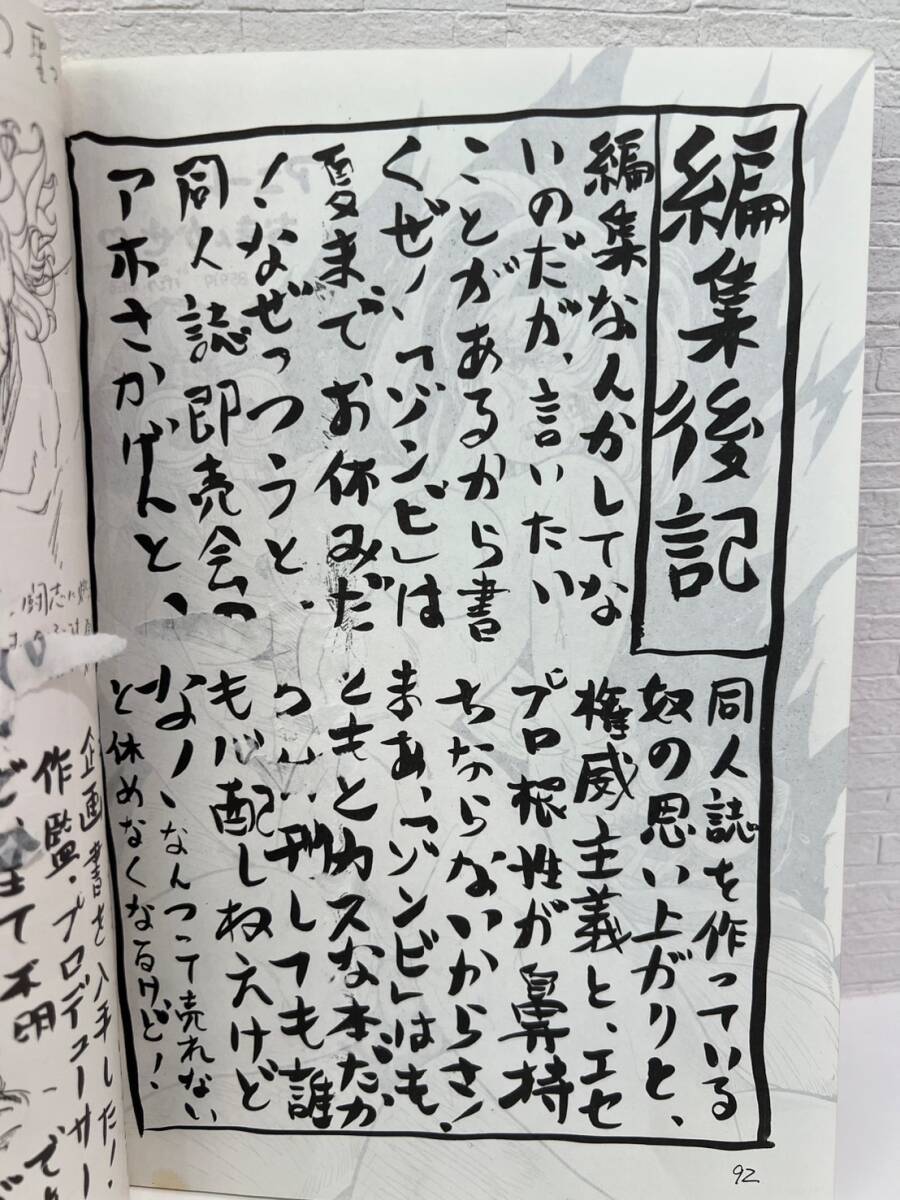 編集後記
編集なんかしてな
いのだが、言いたい
ことがあるから書
くぜ!、「ゾンビ」は
夏までお休みだ
!なぜっつうと、
同人誌即売会の
アホさかげんと、
同人誌を作っている
奴の思い上がりと、
権威主義と、エセ
プロ根性が鼻持
ちならないからさ!
まあ、「ゾンビ」はも
ともとカスな本だか
刊しても誰
も心配しねえけど
な!、なんつって売れない
と休めなくなるけど!
92
闘志に燃
企画書を入手した!
作監・プロデューサー
全て不明